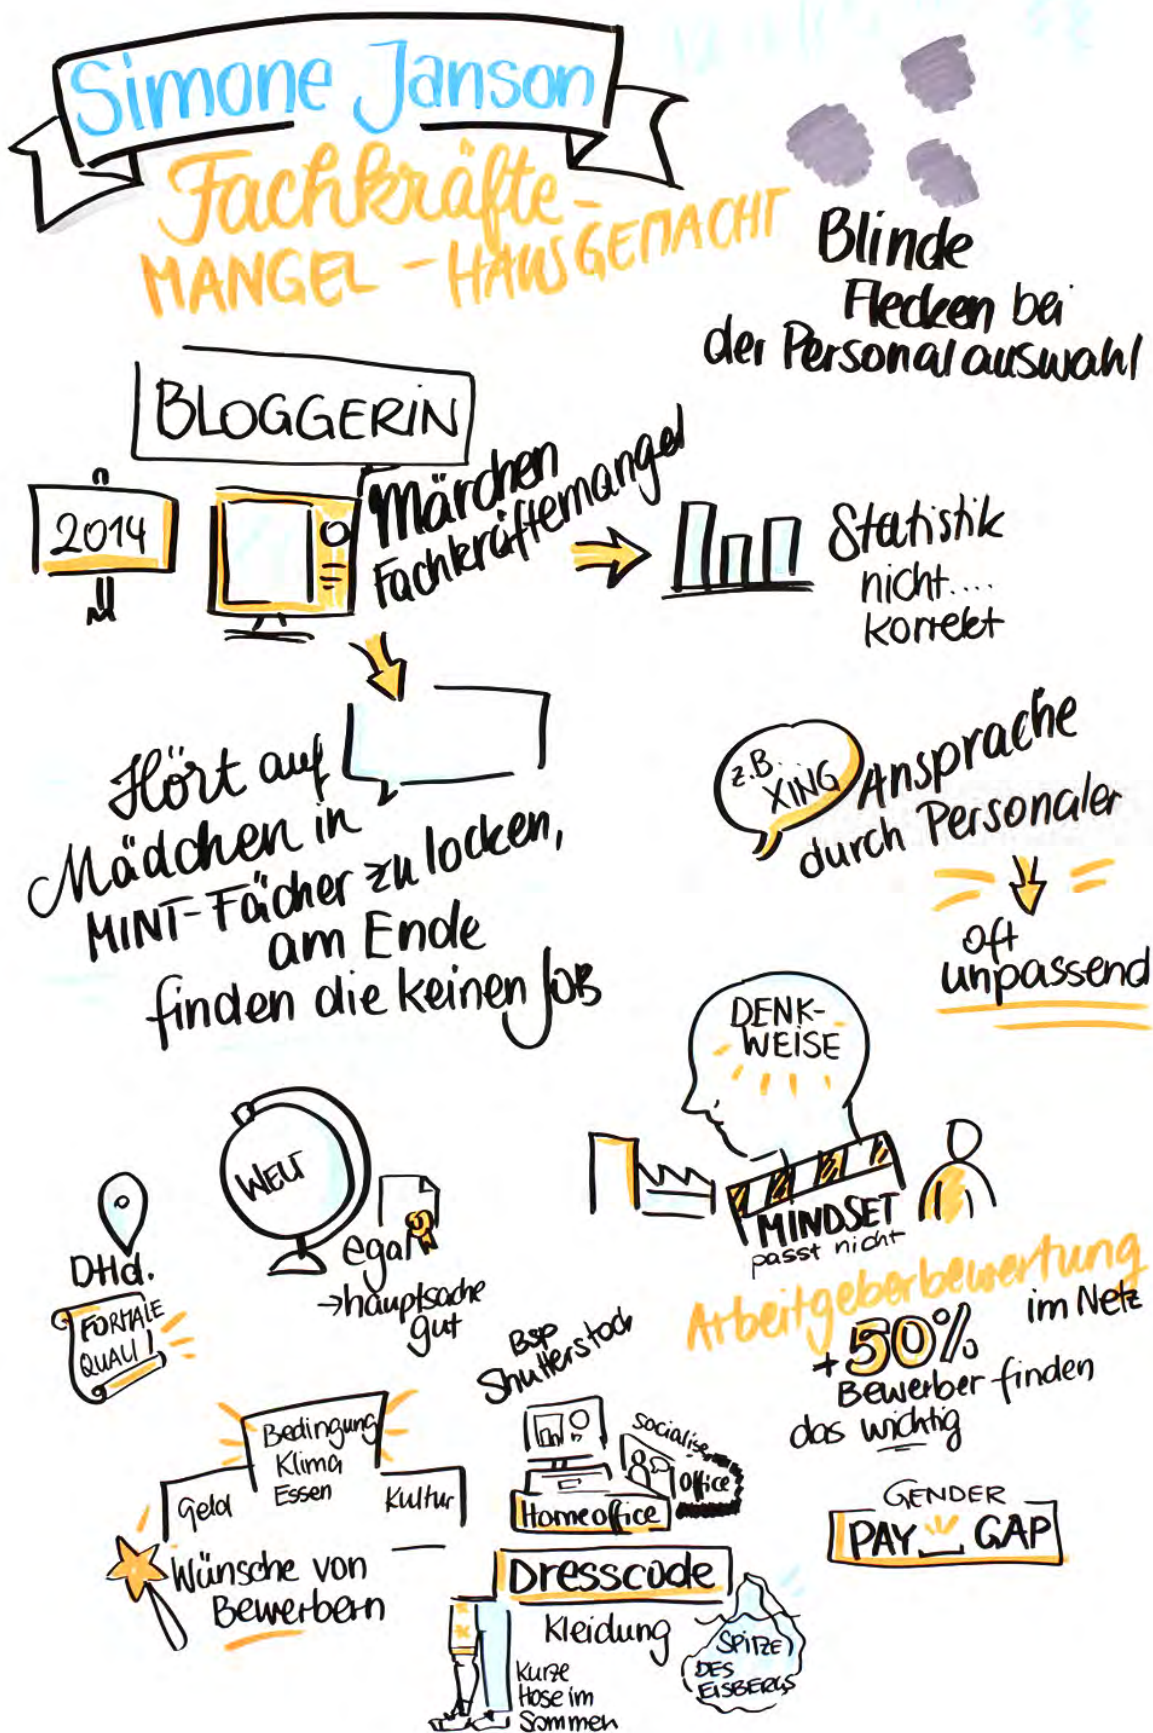 Simone Janson
Fachkräfte-
MANGEL - HAUSGEMACHT
Blinde
Flecken bei
der Personalauswahl
BLOGGERIN
2014
Märchen
Fachkräftemangel
Statistik
nicht....
korrekt
Hört auf
Mädchen in
MINT-Fächer zu locken,
am Ende
finden die keinen Job
z.B.
XING
Ansprache
durch Personaler
oft
unpassend
DENK-
WEISE
MINDSET
passt nicht
WELT
egal
→hauptsache
gut
DHd.
FORMALE
QUALI
Arbeitgeberbewertung
im Netz
+50%
Bewerber finden
das wichtig
Bsp
Shutterstock
Socialise
Office
Homeoffice
Bedingung
Klima
Essen
Geld
Kultur
Wünsche von
Bewerbern
GENDER
PAY GAP
Dresscode
Kleidung
Kurze
Hose im
Sommer
SPITZE
DES
EISBERGS